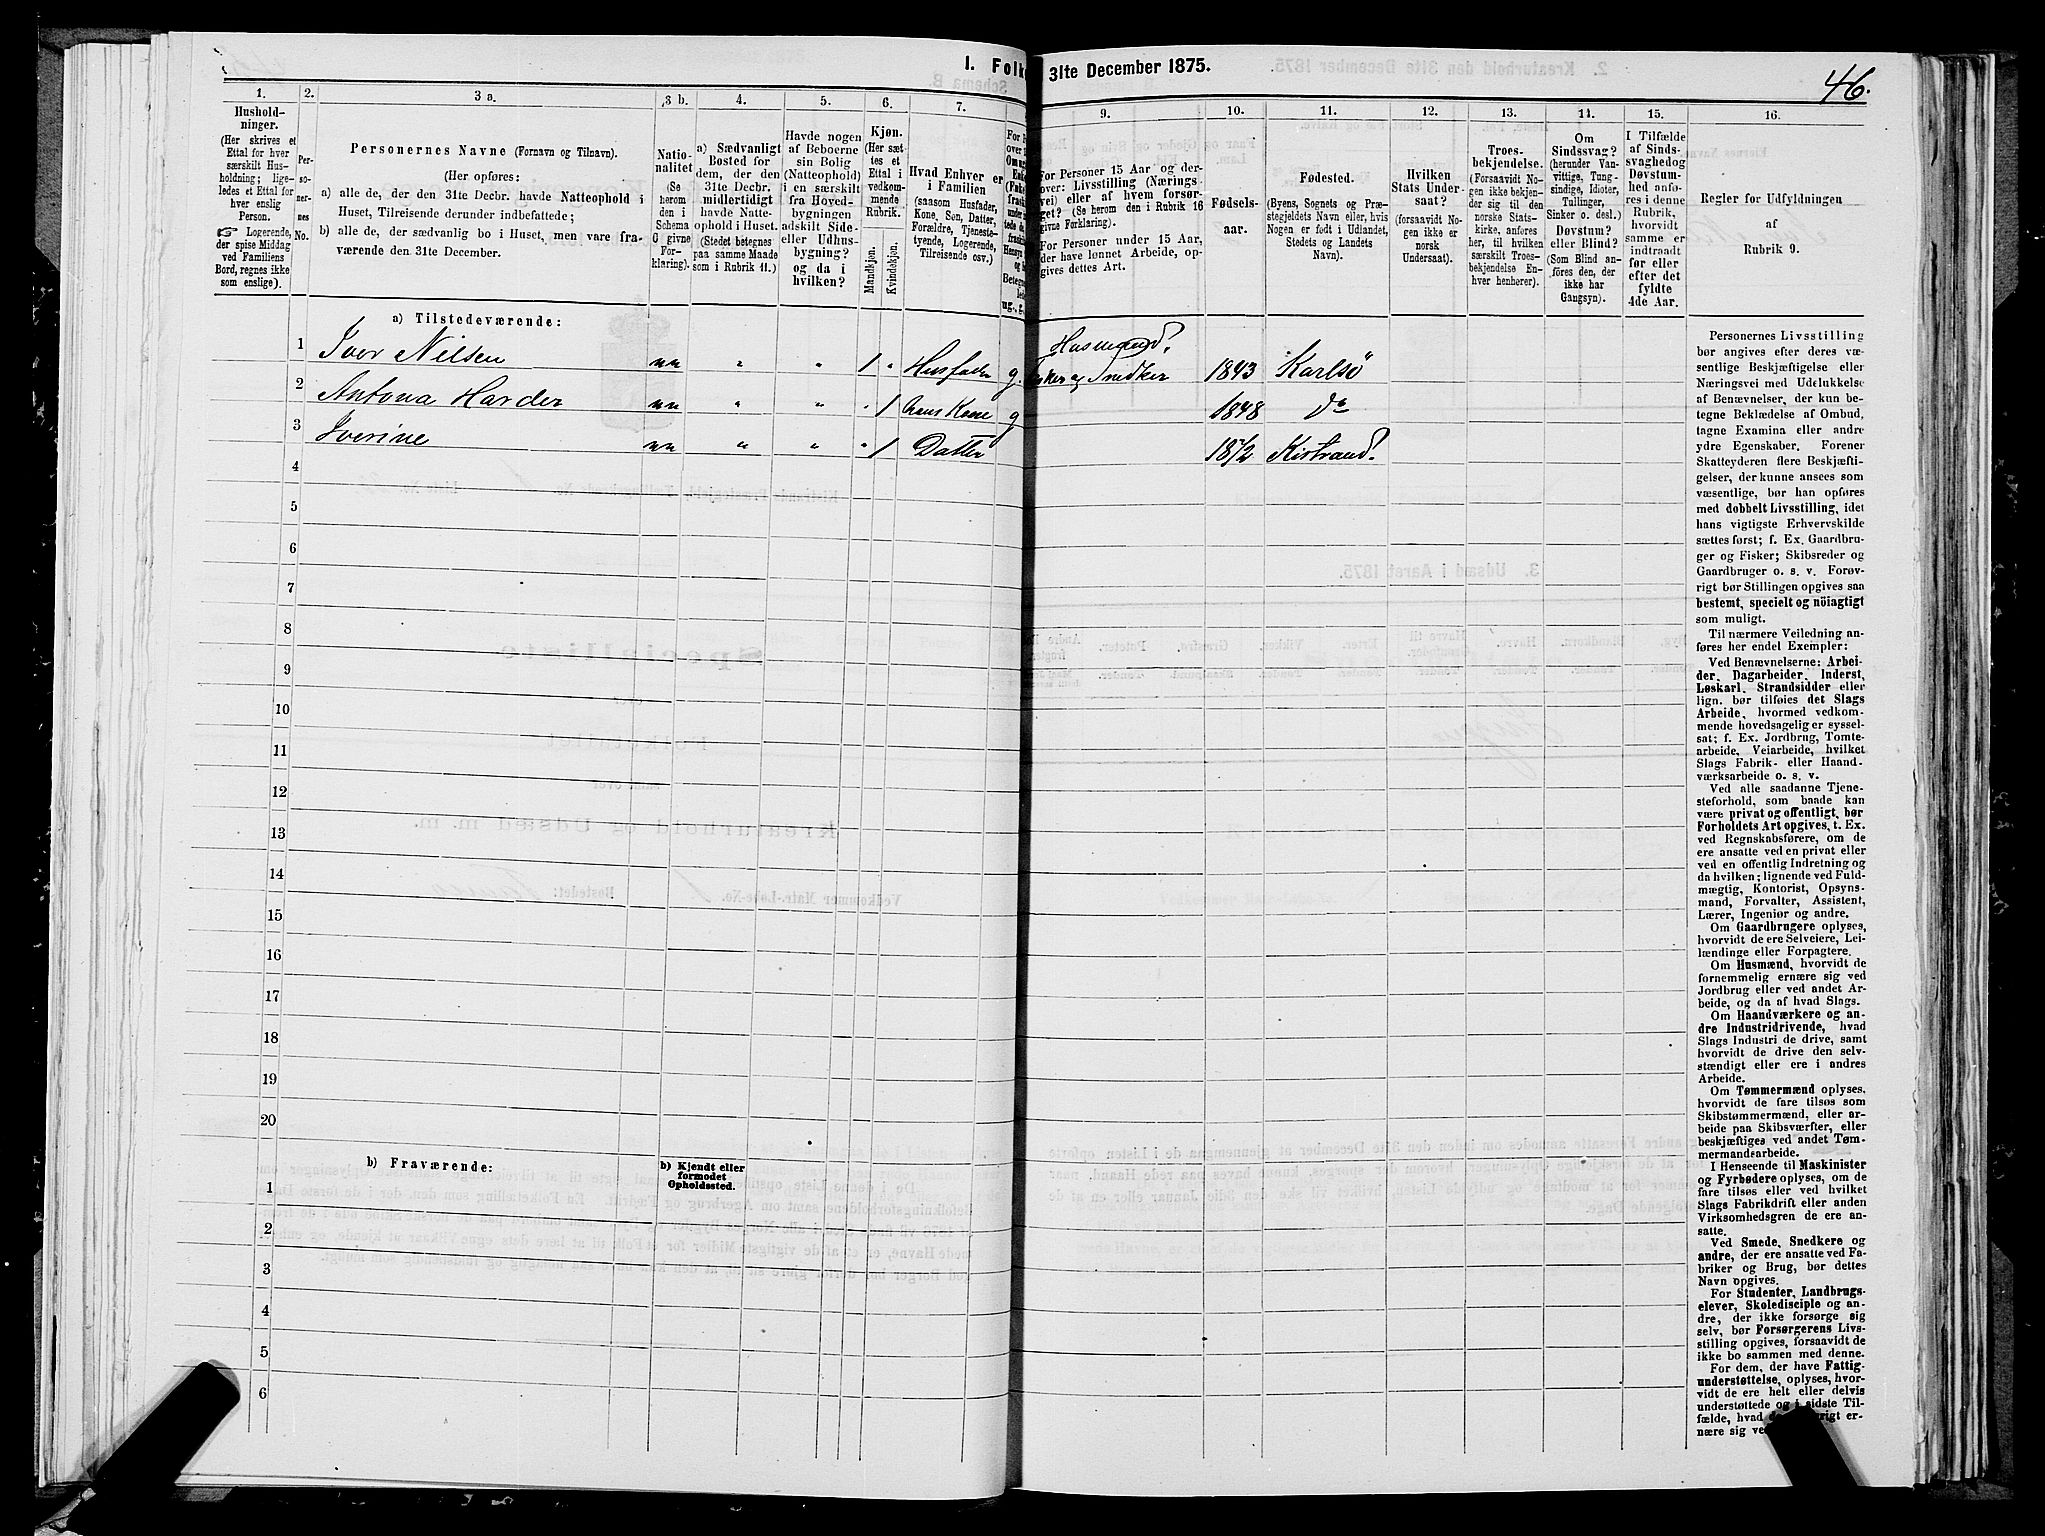 I. Folke 31te December 1875.
46.
1. 2. 3 a. 3 b. 4. 5. 6. 7. 9. 10. 11. 12. 13. 14. 15. 16.
Hushold-
ninger.
(Her skrives et
Ettal for hver
særskilt Hus-
holdning; lige-
ledes et Ettal for
hver enslig
Person.
☞ Logerende,
der spise Middag
ved Familiens
Bord, regnes ikke
som enslige).
Per-
so-
ner-
nes
No.
Personernes Navne (Fornavn og Tilnavn).
(Her opføres:
a) alle de, der den 31te Decbr. havde Natteophold i
Huset, Tilreisende derunder indbefattede;
b) alle de, der sædvanlig bo i Huset, men vare fra-
værende den 31te December.
Natio-
nalitet
(Se
herom
den i
Schema
C givne
For-
klaring).
a) Sædvanligt
Bosted for
dem, der den
31te Decbr.
midlertidigt
havde Natte-
ophold i Huset.
(Stedet betegnes
paa samme Maade
som i Rubrik 11.)
Havde nogen
af Beboerne
sin Bolig
(Natteophold)
i en særskilt
fra Hoved-
bygningen
adskilt Side-
eller Udhus-
bygning?
og da i
hvilken?
Kjøn.
(Her sæt-
tes et
Ettal i
vedkom-
mende
Rubrik.
Mandkjøn.
Kvindekjøn.
Hvad Enhver er
i Familien
(saasom Husfader,
Kone, Søn, Datter,
Forældre, Tjeneste-
tyende, Logerende,
Tilreisende osv.)
For Personer 15 Aar og der-
over: Livsstilling (Nærings-
vei) eller af hvem forsør-
get? (Se herom den i Rubrik 16
givne Forklaring).
For Personer under 15 Aar,
der have lønnet Arbeide, op-
gives dettes Art.
Fødsels-
aar.
Fødested.
(Byens, Sognets og Præ-
stegjeldets Navn eller, hvis
Nogen er født i Udlandet,
Stedets og Landets
Navn).
Hvilken
Stats Under-
saat?
(forsaavidt No-
gen ikke er
norsk
Undersaat).
Troes-
bekjendelse.
(Forsaavidt No-
gen ikke bekjen-
der sig til den
norske Stats-
kirke, anføres
her, til hvilken
særskilt Troes-
bekjendelse En-
hver henhører).
Om
Sindssvag?
(herunder Van-
vittige, Tung-
sindige, Idioter,
Tullinger,
Sinker o. desl.)
Døvstum?
eller Blind?
(Som Blind an-
føres den, der
ikke har
Gangsyn).
I Tilfælde
af Sinds-
svaghedog
Døvstum-
hed anfø-
res i denne
Rubrik,
hvorvidt
samme er
indtraadt
før eller
efter det
fyldte
4de Aar.
Regler for Udfyldningen
af
Rubrik 9.
a) Tilstedeværende:
1 Iver Nilsen nn " " 1 " Husfader g. Husmand. Fisker og Snedker 1843 Karlsö
2 Antona Harder nn " " " 1 hans Kone g 1848 do
3 Iverine nn " " " 1 Datter 1872 Kistrand.
4
5
6
7
8
9
10
11
12
13
14
15
16
17
18
19
20
b) Fraværende:
b) Kjendt eller
formodet
Opholdssted.
1
2
3
4
5
6
Personernes Livsstilling
bør angives efter deres væ-
sentlige Beskjæftigelse eller
Næringsvei med Udelukkelse
af Benævnelser, der kun be-
tegne Beklædelse af Ombud,
tagne Examina eller andre
ydre Egenskaber. Forener
Skatteyderen flere Beskjæfti-
gelser, der kunne ansees som
væsentlige, bør han opføres
med dobbelt Livsstilling, idet
hans vigtigste Erhvervskilde
sættes først; f. Ex. Gaardbru-
ger og Fisker; Skibsreder og
Gaardbruger o. s. v. Forøv-
rigt bør Stillingen opgives saa
bestemt, specielt og nöiagtigt
som muligt.
Til nærmere Veiledning an-
føres her endel Exempler:
Ved Benævnelserne: Arbei-
der, Dagarbeider, Inderst,
Løskarl, Strandsidder eller
lign. bør tilføies det Slags
Arbeide, hvormed vedkom-
mende hovedsagelig er syssel-
sat; f. Ex. Jordbrug, Tomte-
arbeide, Veiarbeide, hvilket
Slags Fabrik- eller Haand-
værksarbeide o. s. v.
Ved alle saadanne Tjene-
steforhold, som baade kan
være privat og offentligt, bør
Forholdets Art opgives, t. Ex.
ved Regnskabsførere, om de
ere ansatte ved en privat eller
ved en offentlig Indretning og
da hvilken; lignende ved Fuld-
mægtig, Kontorist, Opsyns-
mand, Forvalter, Assistent,
Lærer, Ingeniør og andre.
Om Gaardbrugere oplyses,
hvorvidt de ere Selveiere, Lei-
lændinge eller Forpagtere.
Om Husmænd, hvorvidt de
fornemmelig ernære sig ved
Jordbrug eller ved andet Ar-
beide, og da af hvad Slags.
Om Haandværkere og an-
dre Industridrivende, hvad
Slags Industri de drive, samt
hvorvidt de drive den selv-
stændigt eller ere i andres
Arbeide.
Om Tømmermænd oplyses,
hvorvidt de fare tilsøs som
Skibstømmermænd, eller ar-
beide paa Skibsværfter, eller
beskjæftiges ved andet Tøm-
mermandsarbeide.
I Henseende til Maskinister
og Fyrbødere oplyses, om de
fare tilsøs eller ved hvilket
Slags Fabrikdrift eller anden
Virksomhedsgren de ere an-
satte.
Ved Smede, Snedkere og
andre, der ere ansatte ved Fa-
briker og Brug, bør dettes
Navn opgives.
For Studenter, Landbrugs-
elever, Skoledisciple og an-
dre, der ikke forsørge sig
selv, bør Forsørgerens Livs-
stilling opgives, forsaavidt de
ikke bo sammen med denne.
For dem, der have Fattig-
understøttelse, oplyses, hvor-
vidt de ere helt eller delvis
understøttede og i sidste Til-
fælde, hvad
nære sig ved